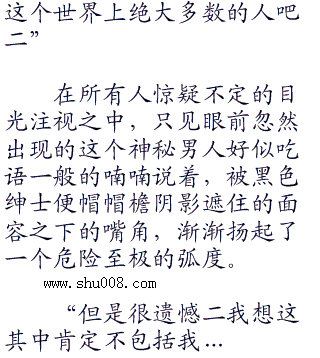 这个世界上绝大多数的人吧
二”
在所有人惊疑不定的目
光注视之中，只见眼前忽然
出现的这个神秘男人好似呓
语一般的喃喃说着，被黑色
绅士便帽帽檐阴影遮住的面
容之下的嘴角，渐渐扬起了
一个危险至极的弧度。
www.shu008.com
“但是很遗憾二我想这
其中肯定不包括我...